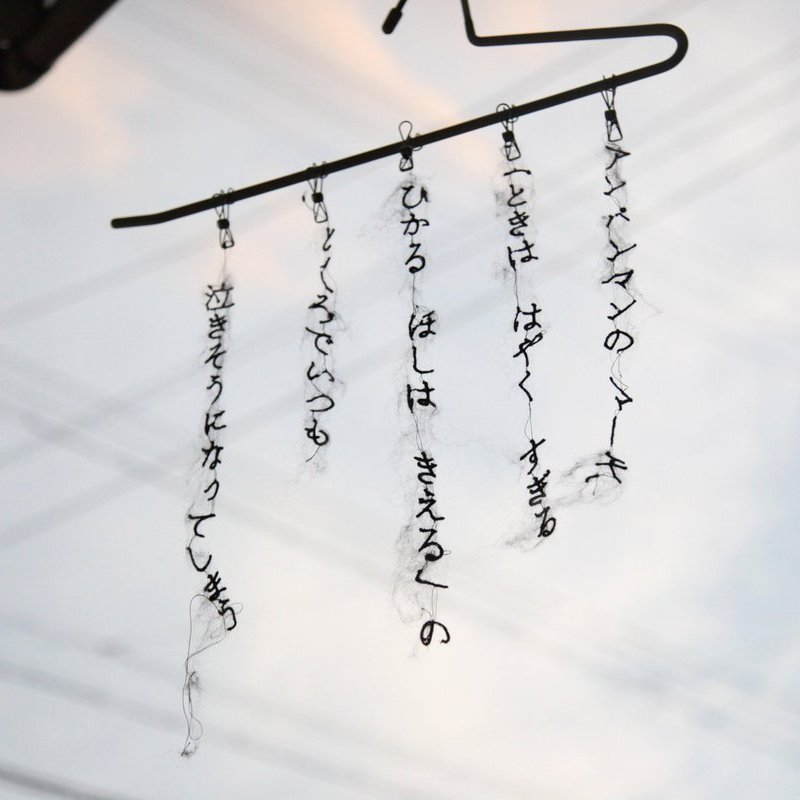 アンパンマンのマーチ
一ときは はやく すぎる
ひかる ほしは きえる〱の
ところでいつも
泣きそうになってしまう